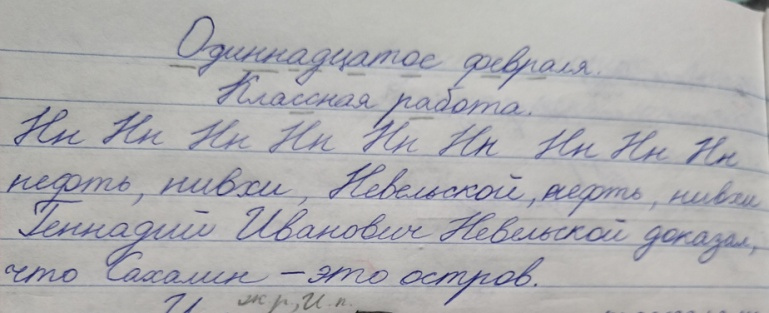 Одиннадцатое февраля.
Классная работа.
Нн Нн Нн Нн Нн Нн Нн Нн Нн
нефть, нивхи, Невельской, нефть, нивхи
Геннадий Иванович Невельской доказал,
что Сахалин – это остров.
ж.р., И.п.